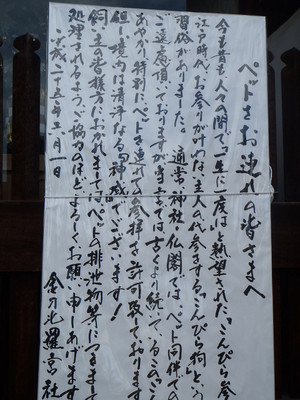 ペットをお連れの皆さまへ
今も昔も、人々の間で「一生に一度は」と熱望された「こんぴら参
江戸時代、お参りが叶わぬ主人の代参をする「こんぴら狗」という
習俗がありました。通常、神社・仏閣では、ペット同伴での
ご遠慮頂いておりますが、当宮では、古くより続いている「こ
あやかり特別にペットを連れての参拝を許可致しております
但し境内は清浄なる「神域」でございます！
飼い主の皆様方におかれましてはペットの排泄物等につきまして
処理されるよう、ご協力のほどよろしくお願い申しあげます
平成二十五年三月一日
金刀比羅宮京社